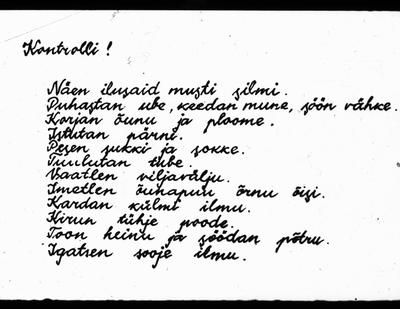 Kontrolli!
Näen ilusaid musti silmi.
Puhastan ube, keedan mune, söön vähke.
Korjan õunu ja ploome.
Istutan pärni.
Pesen sukki ja sokke.
Tuulutan tube.
Vaatlen viljavälju.
Imetlen õunapuu õrnu õisi.
Kardan külmi ilmu.
Kirun tühje poode.
Toon heinu ja söödan põtru.
Igatsen sooje ilmu.